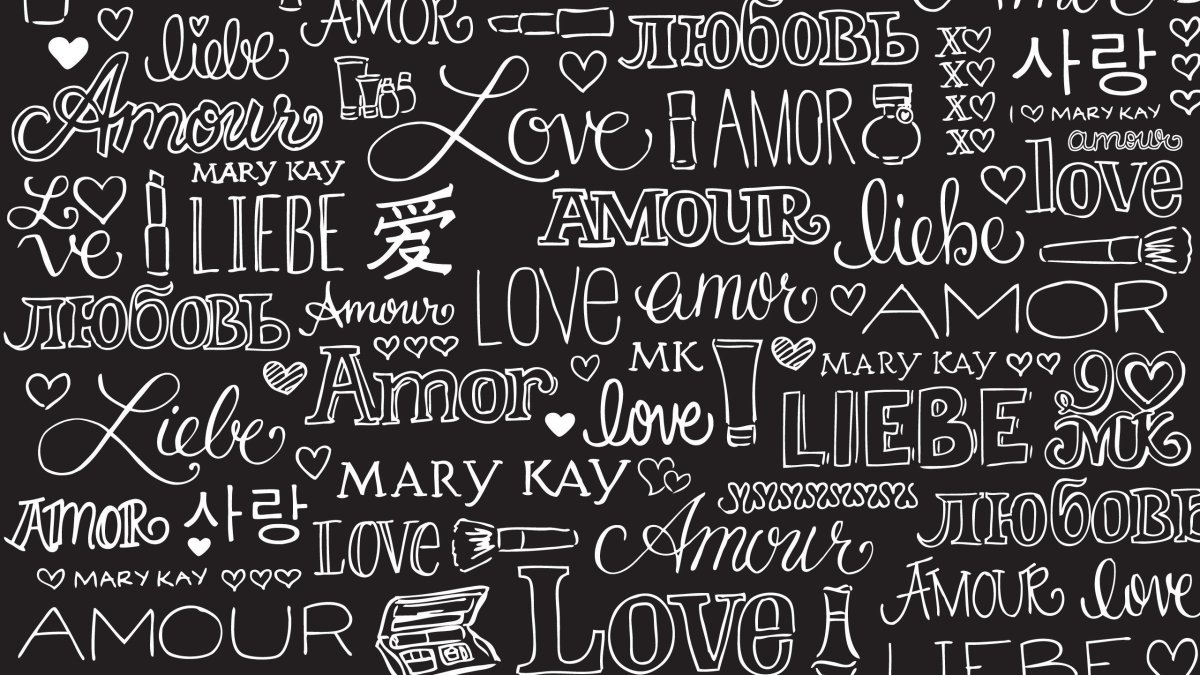 AMOR
любовь
liebe
XO
XO
XO
XO
사랑
I ♡ MARY KAY
Amour
Love
AMOR
amour
love
MARY KAY
LOVE
LIEBE
爱
AMOUR
liebe
любовь
Amour
LOVE
amor
AMOR
Amor
MK
MARY KAY
Liebe
love
LIEBE
I ♡
MK
MARY KAY
AMOR
사랑
LOVE
Amour
любовь
MARY KAY
AMOUR
Love
AMOUR
love
LIEBE